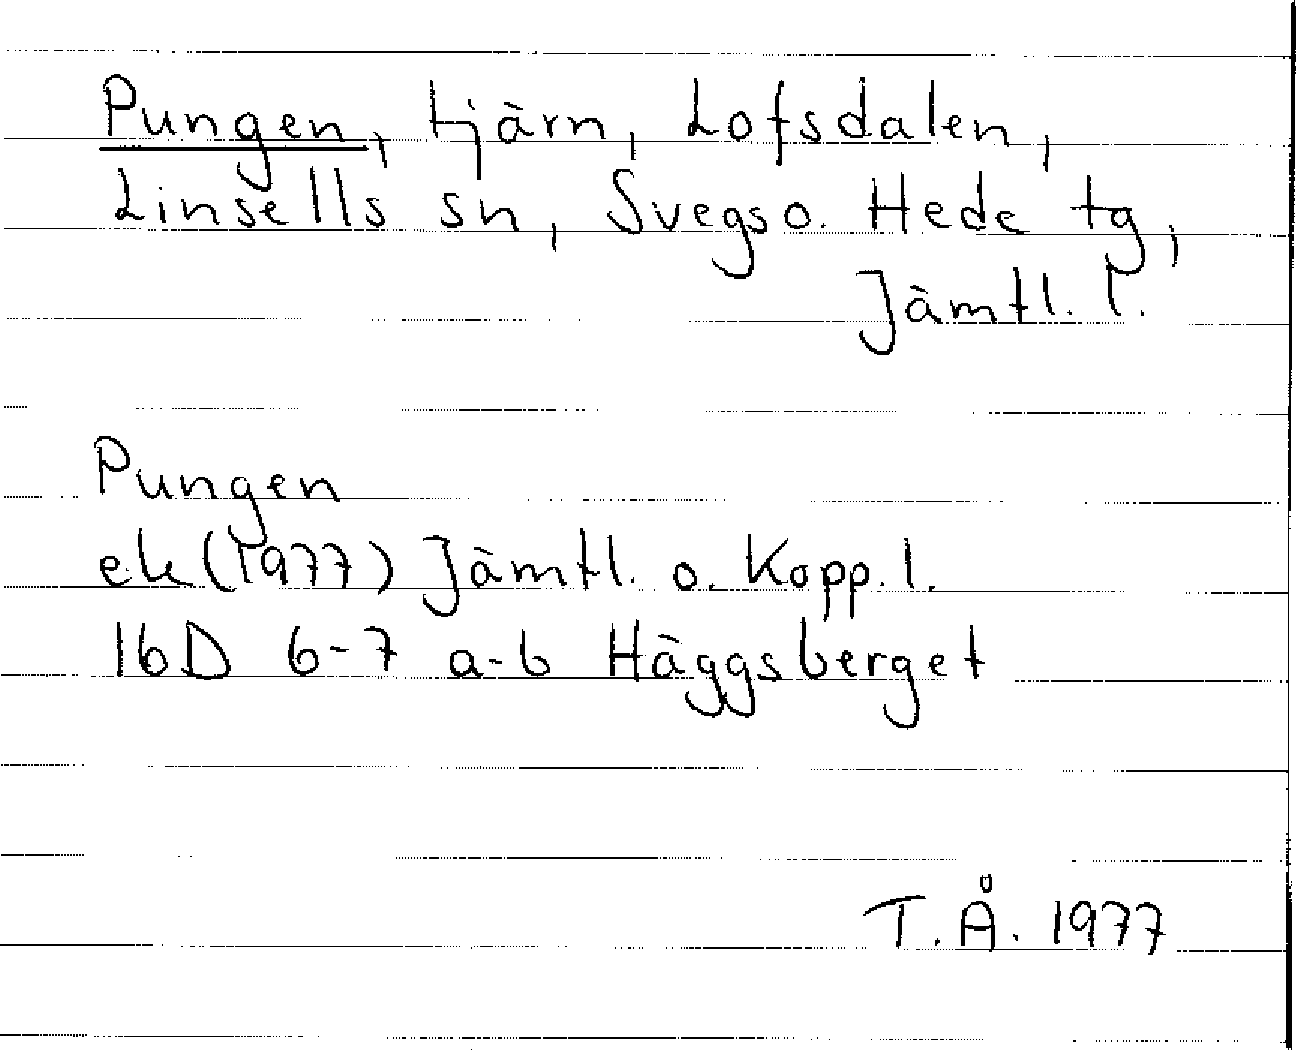 Pungen, tjärn, Lofsdalen,
Linsells sn, Svegs o. Hede tg,
Jämtl. l.
Pungen
ek (1977) Jämtl. o. Kopp. l.
16D 6-7 a-b Häggsberget
T. Å. 1977